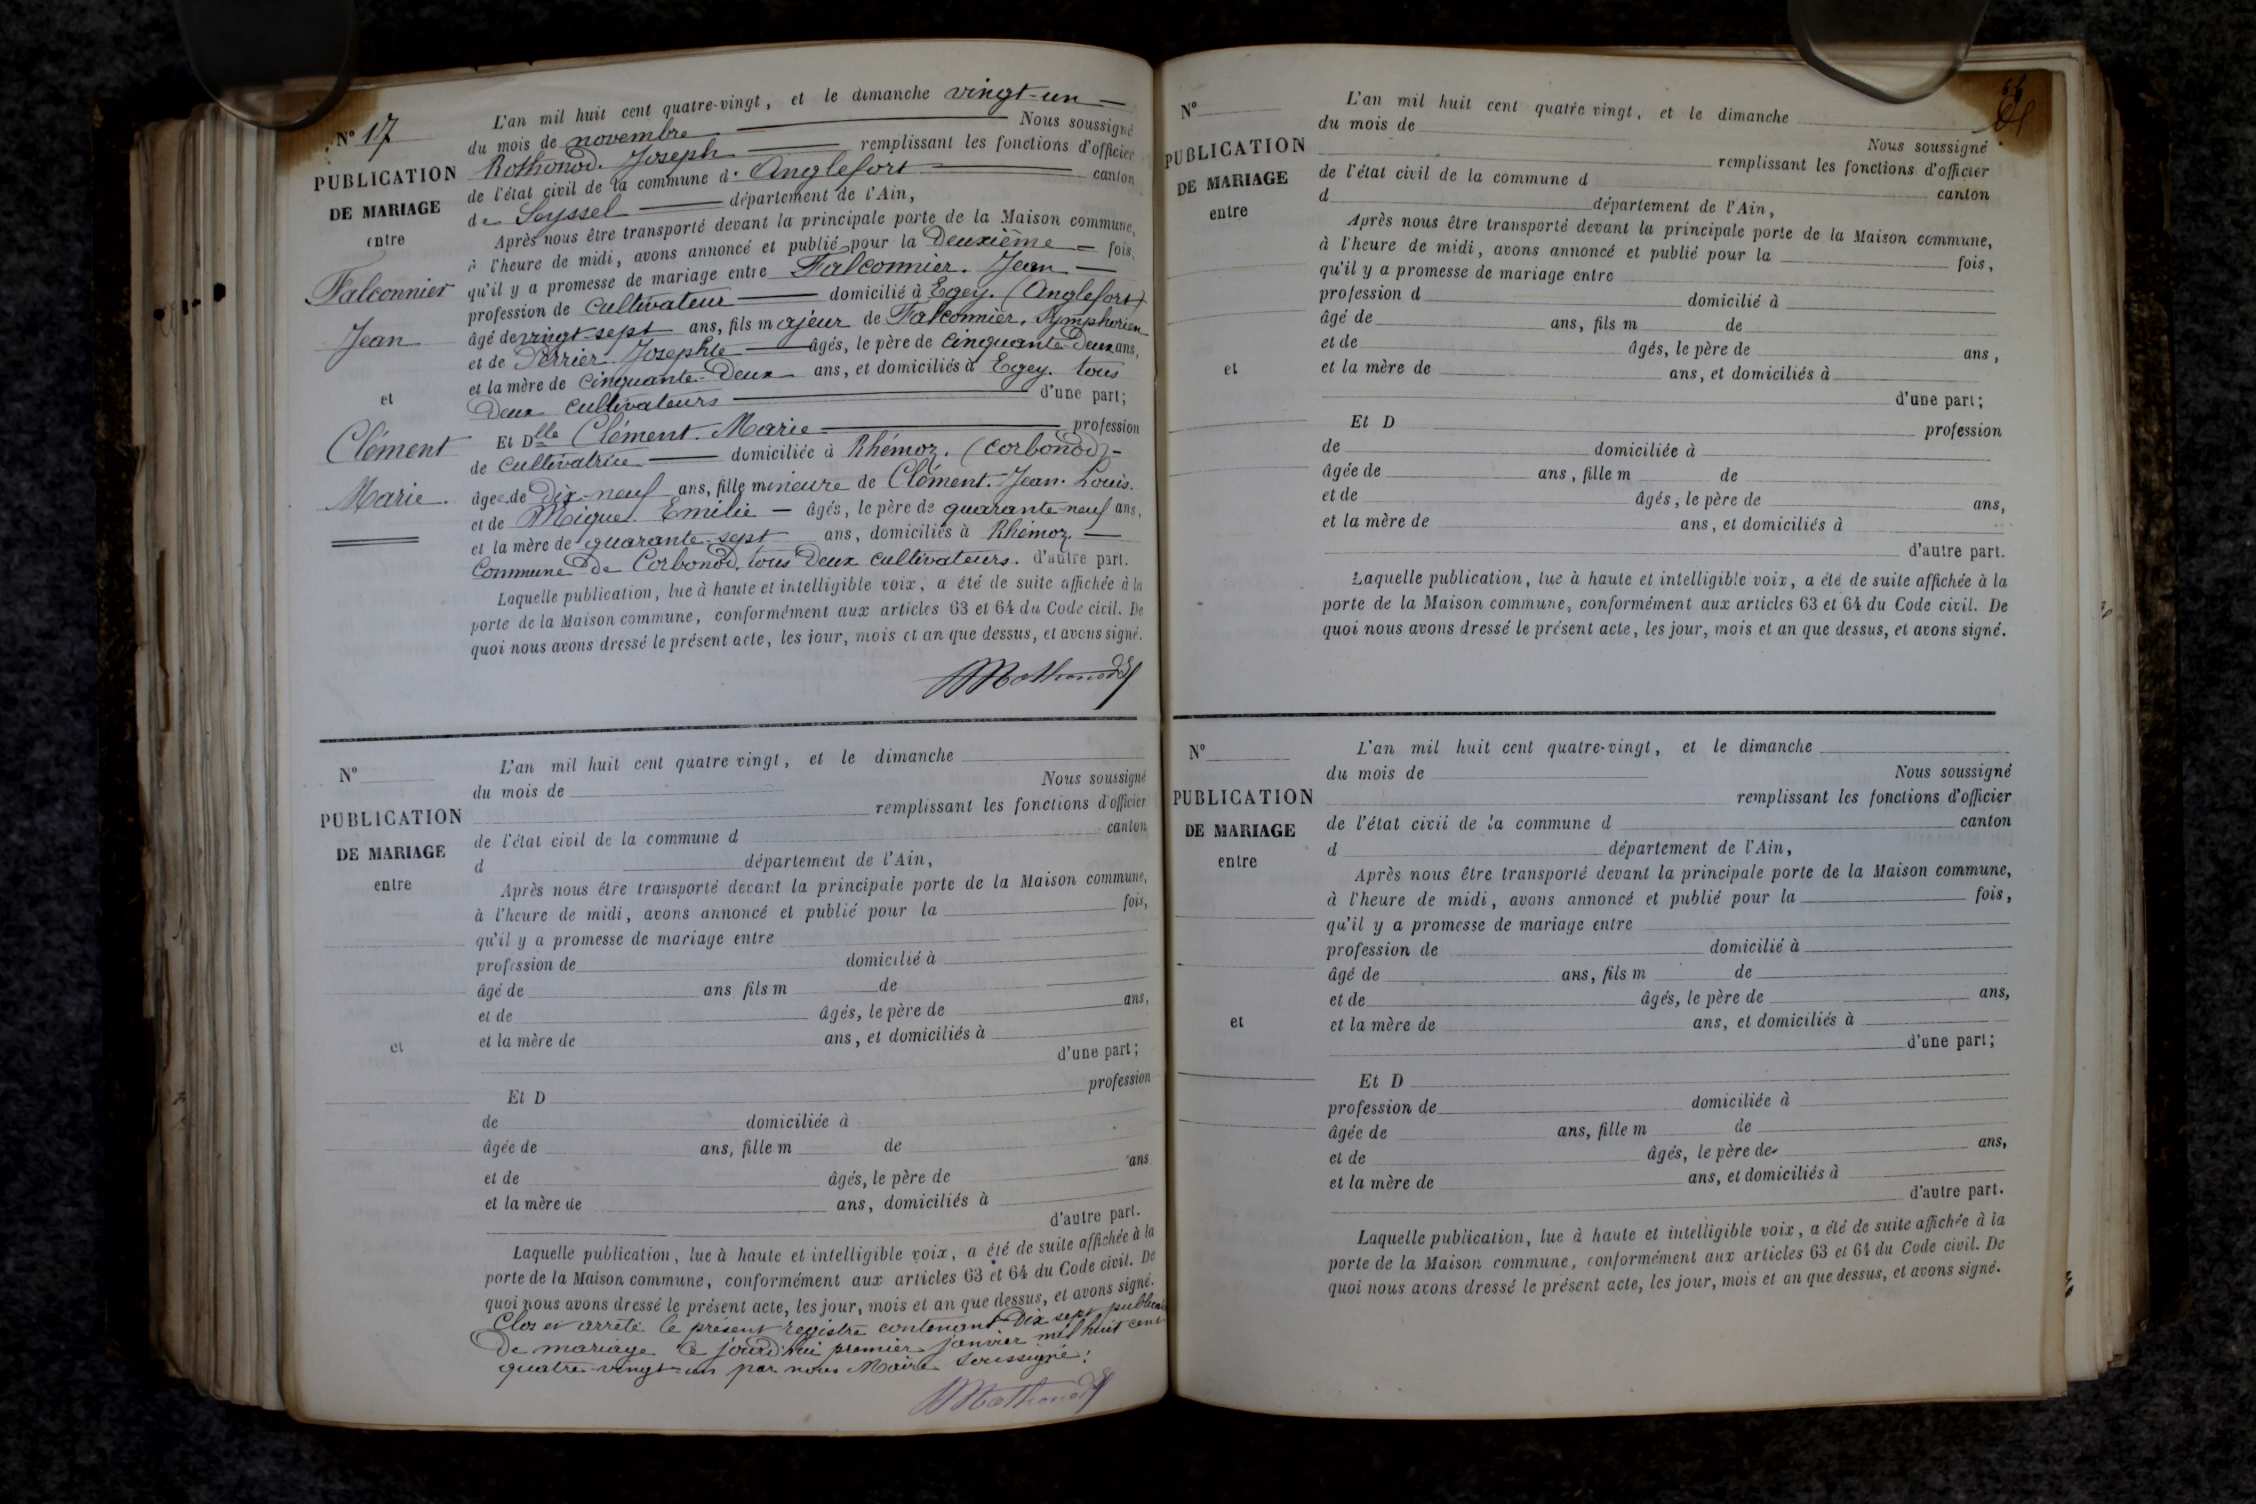 N° 17
PUBLICATION
DE MARIAGE
entre
Falconnier
Jean
et
Clément
Marie.
L'an mil huit cent quatre-vingt, et le dimanche vingt-un
du mois de novembre Nous soussigné
Rothonod. Joseph remplissant les fonctions d'officier
de l'état civil de la commune d' Anglefort canton
de Seyssel département de l'Ain,
Après nous être transporté devant la principale porte de la Maison commune,
à l'heure de midi, avons annoncé et publié pour la Deuxième fois,
qu'il y a promesse de mariage entre Falconnier. Jean
profession de cultivateur domicilié à Egey. (Anglefort)
âgé de vingt-sept ans, fils majeur de Falconnier. Symphorien
et de Perrier. Josephte âgés, le père de cinquante-Deux ans,
et la mère de cinquante-Deux ans, et domiciliés à Egey. tous
Deux cultivateurs d'une part;
Et Dlle Clément. Marie profession
de cultivatrice domiciliée à Rhémoz. (Corbonod)
âgée de Dix-neuf ans, fille mineure de Clément. Jean. Louis.
et de Miguet Emilie âgés, le père de quarante-neuf ans,
et la mère de quarante-sept ans, domiciliés à Rhémoz
Commune de Corbonod, tous Deux cultivateurs. d'autre part.
Laquelle publication, lue à haute et intelligible voix, a été de suite affichée à la
porte de la Maison commune, conformément aux articles 63 et 64 du Code civil. De
quoi nous avons dressé le présent acte, les jour, mois et an que dessus, et avons signé.
Rothonod
N°
PUBLICATION
DE MARIAGE
entre
et
L'an mil huit cent quatre vingt, et le dimanche
du mois de Nous soussigné
remplissant les fonctions d'officier
de l'état civil de la commune d canton
d département de l'Ain,
Après nous être transporté devant la principale porte de la Maison commune,
à l'heure de midi, avons annoncé et publié pour la fois,
qu'il y a promesse de mariage entre
profession de domicilié à
âgé de ans fils m de
et de âgés, le père de ans,
et la mère de ans, et domiciliés à
d'une part;
Et D profession
de domiciliée à
âgée de ans, fille m de
et de âgés, le père de ans
et la mère de ans, domiciliés à
d'autre part.
Laquelle publication, lue à haute et intelligible voix, a été de suite affichée à la
porte de la Maison commune, conformément aux articles 63 et 64 du Code civil. De
quoi nous avons dressé le présent acte, les jour, mois et an que dessus, et avons signé.
Clos et arrêté le présent registre contenant Dix sept
De mariage ce jourd'hui premier janvier mil huit cent
quatre-vingt-un par nous Maire soussigné.
Rothonod
N°
PUBLICATION
DE MARIAGE
entre
et
L'an mil huit cent quatre vingt, et le dimanche
du mois de
Nous soussigné
remplissant les fonctions d'officier
de l'état civil de la commune d canton
d département de l'Ain,
Après nous être transporté devant la principale porte de la Maison commune,
à l'heure de midi, avons annoncé et publié pour la fois,
qu'il y a promesse de mariage entre
profession d domicilié à
âgé de ans, fils m de
et de âgés, le père de ans,
et la mère de ans, et domiciliés à
d'une part;
Et D profession
de domiciliée à
âgée de ans, fille m de
et de âgés, le père de ans,
et la mère de ans, et domiciliés à
d'autre part.
Laquelle publication, lue à haute et intelligible voix, a été de suite affichée à la
porte de la Maison commune, conformément aux articles 63 et 64 du Code civil. De
quoi nous avons dressé le présent acte, les jour, mois et an que dessus, et avons signé.
N°
PUBLICATION
DE MARIAGE
entre
et
L'an mil huit cent quatre-vingt, et le dimanche
du mois de Nous soussigné
remplissant les fonctions d'officier
de l'état civil de la commune d canton
d département de l'Ain,
Après nous être transporté devant la principale porte de la Maison commune,
à l'heure de midi, avons annoncé et publié pour la fois,
qu'il y a promesse de mariage entre
profession de domicilié à
âgé de ans, fils m de
et de âgés, le père de ans,
et la mère de ans, et domiciliés à
d'une part;
Et D
profession de domiciliée à
âgée de ans, fille m de
et de âgés, le père de ans,
et la mère de ans, et domiciliés à
d'autre part.
Laquelle publication, lue à haute et intelligible voix, a été de suite affichée à la
porte de la Maison commune, conformément aux articles 63 et 64 du Code civil. De
quoi nous avons dressé le présent acte, les jour, mois et an que dessus, et avons signé.